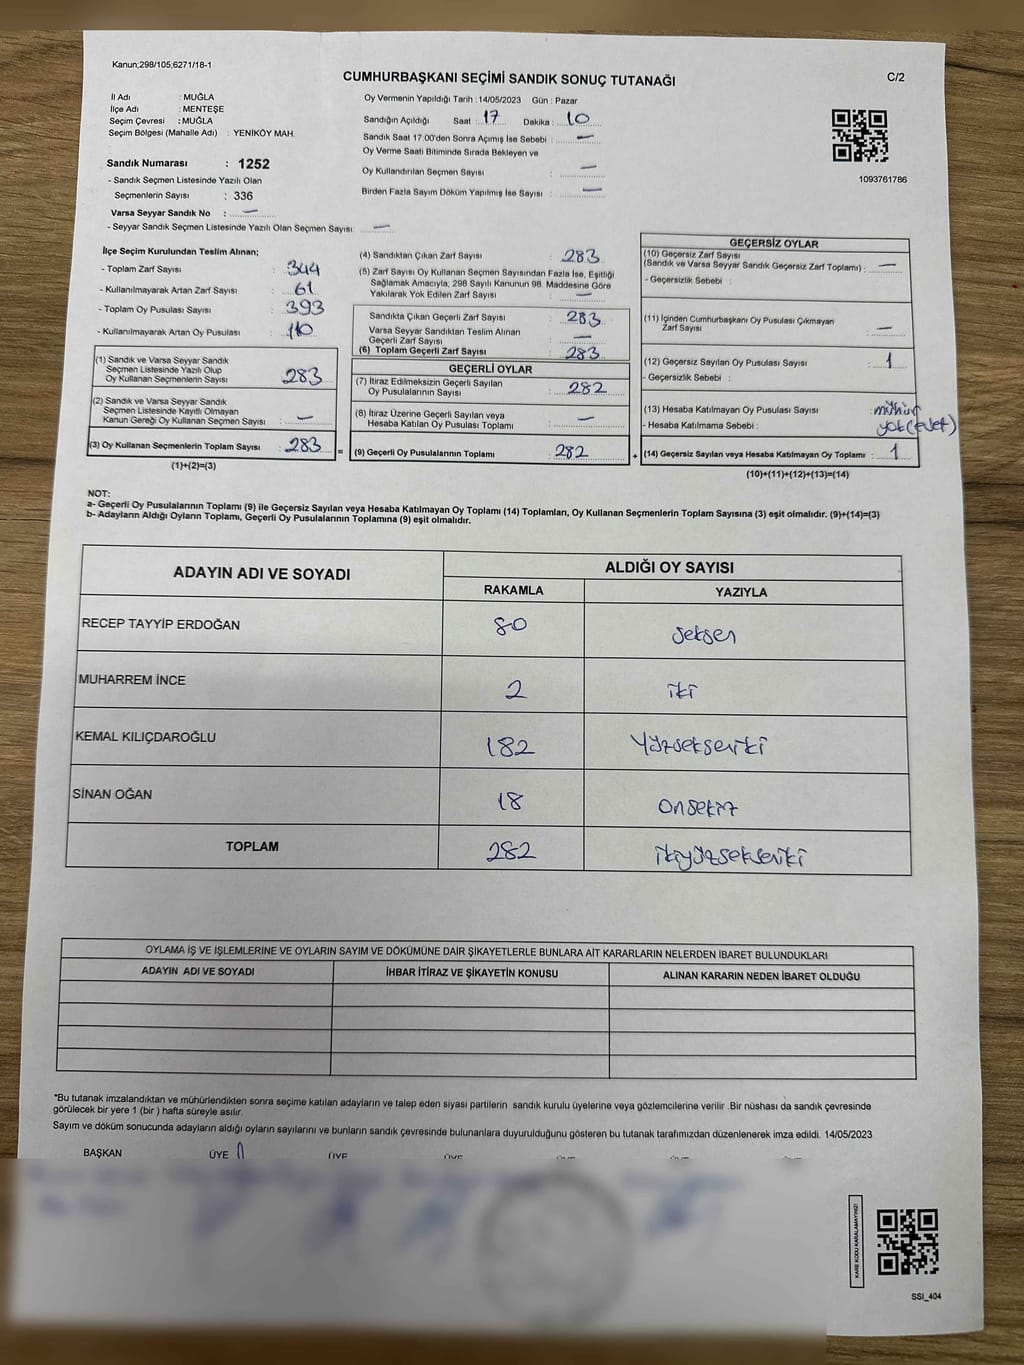 Kanun;298/105,6271/18-1
CUMHURBAŞKANI SEÇİMİ SANDIK SONUÇ TUTANAĞI
C/2
İl Adı : MUĞLA
İlçe Adı : MENTEŞE
Seçim Çevresi : MUĞLA
Seçim Bölgesi (Mahalle Adı) : YENİKÖY MAH.
Sandık Numarası : 1252
- Sandık Seçmen Listesinde Yazılı Olan
Seçmenlerin Sayısı : 336
Varsa Seyyar Sandık No : —
- Seyyar Sandık Seçmen Listesinde Yazılı Olan Seçmen Sayısı: —
Oy Vermenin Yapıldığı Tarih : 14/05/2023 Gün : Pazar
Sandığın Açıldığı Saat : 17 Dakika : 10
Sandık Saat 17:00'den Sonra Açımış İse Sebebi : —
Oy Verme Saati Bitiminde Sırada Bekleyen ve
Oy Kullandırılan Seçmen Sayısı : —
Birden Fazla Sayım Döküm Yapılmış İse Sayısı : —
1093761786
İlçe Seçim Kurulundan Teslim Alınan;
- Toplam Zarf Sayısı : 344
- Kullanılmayarak Artan Zarf Sayısı : 61
- Toplam Oy Pusulası Sayısı : 393
- Kullanılmayarak Artan Oy Pusulası : 110
(1) Sandık ve Varsa Seyyar Sandık
Seçmen Listesinde Yazılı Olup
Oy Kullanan Seçmenlerin Sayısı : 283
(2) Sandık ve Varsa Seyyar Sandık
Seçmen Listesinde Kayıtlı Olmayan
Kanun Gereği Oy Kullanan Seçmen Sayısı : —
(3) Oy Kullanan Seçmenlerin Toplam Sayısı : 283
(1)+(2)=(3)
(4) Sandıktan Çıkan Zarf Sayısı : 283
(5) Zarf Sayısı Oy Kullanan Seçmen Sayısından Fazla İse, Eşitliği
Sağlamak Amacıyla, 298 Sayılı Kanunun 98. Maddesine Göre
Yakılarak Yok Edilen Zarf Sayısı : —
Sandıkta Çıkan Geçerli Zarf Sayısı : 283
Varsa Seyyar Sandıktan Teslim Alınan
Geçerli Zarf Sayısı : —
(6) Toplam Geçerli Zarf Sayısı : 283
GEÇERLİ OYLAR
(7) İtiraz Edilmeksizin Geçerli Sayılan
Oy Pusulalarının Sayısı : 282
(8) İtiraz Üzerine Geçerli Sayılan veya
Hesaba Katılan Oy Pusulası Toplamı : —
= (9) Geçerli Oy Pusulalarının Toplamı : 282 +
GEÇERSİZ OYLAR
(10) Geçersiz Zarf Sayısı
(Sandık ve Varsa Seyyar Sandık Geçersiz Zarf Toplamı) : —
- Geçersizlik Sebebi :
(11) İçinden Cumhurbaşkanı Oy Pusulası Çıkmayan
Zarf Sayısı : —
(12) Geçersiz Sayılan Oy Pusulası Sayısı : 1
- Geçersizlik Sebebi :
(13) Hesaba Katılmayan Oy Pusulası Sayısı : mühür
- Hesaba Katılmama Sebebi : yok(evet)
(14) Geçersiz Sayılan veya Hesaba Katılmayan Oy Toplamı : 1
(10)+(11)+(12)+(13)=(14)
NOT:
a- Geçerli Oy Pusulalarının Toplamı (9) ile Geçersiz Sayılan veya Hesaba Katılmayan Oy Toplamı (14) Toplamları, Oy Kullanan Seçmenlerin Toplam Sayısına (3) eşit olmalıdır. (9)+(14)=(3)
b- Adayların Aldığı Oyların Toplamı, Geçerli Oy Pusulalarının Toplamına (9) eşit olmalıdır.
ADAYIN ADI VE SOYADI ALDIĞI OY SAYISI
RAKAMLA YAZIYLA
RECEP TAYYİP ERDOĞAN 80 seksen
MUHARREM İNCE 2 iki
KEMAL KILIÇDAROĞLU 182 Yüzsekseniki
SİNAN OĞAN 18 onsekiz
TOPLAM 282 ikiyüzsekseniki
OYLAMA İŞ VE İŞLEMLERİNE VE OYLARIN SAYIM VE DÖKÜMÜNE DAİR ŞİKAYETLERLE BUNLARA AİT KARARLARIN NELERDEN İBARET BULUNDUKLARI
ADAYIN ADI VE SOYADI İHBAR İTİRAZ VE ŞİKAYETİN KONUSU ALINAN KARARIN NEDEN İBARET OLDUĞU
*Bu tutanak imzalandıktan ve mühürlendikten sonra seçime katılan adayların ve talep eden siyasi partilerin sandık kurulu üyelerine veya gözlemcilerine verilir .Bir nüshası da sandık çevresinde
görülecek bir yere 1 (bir ) hafta süreyle asılır.
Sayım ve döküm sonucunda adayların aldığı oyların sayılarını ve bunların sandık çevresinde bulunanlara duyurulduğunu gösteren bu tutanak tarafımızdan düzenlenerek imza edildi. 14/05/2023
BAŞKAN ÜYE ÜYE ÜYE ÜYE ÜYE ÜYE
KARE KODU KARALAMAYINIZ!
SSI_404